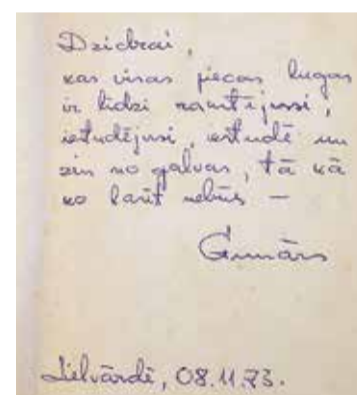 Dzidrai,
kas visas piecas lugas
ir līdzi raustījusi,
iestudējusi, iestudē un
zin no galvas, tā kā
ko lasīt nebūs —
Gunārs
Lielvārdē, 08.11.73.